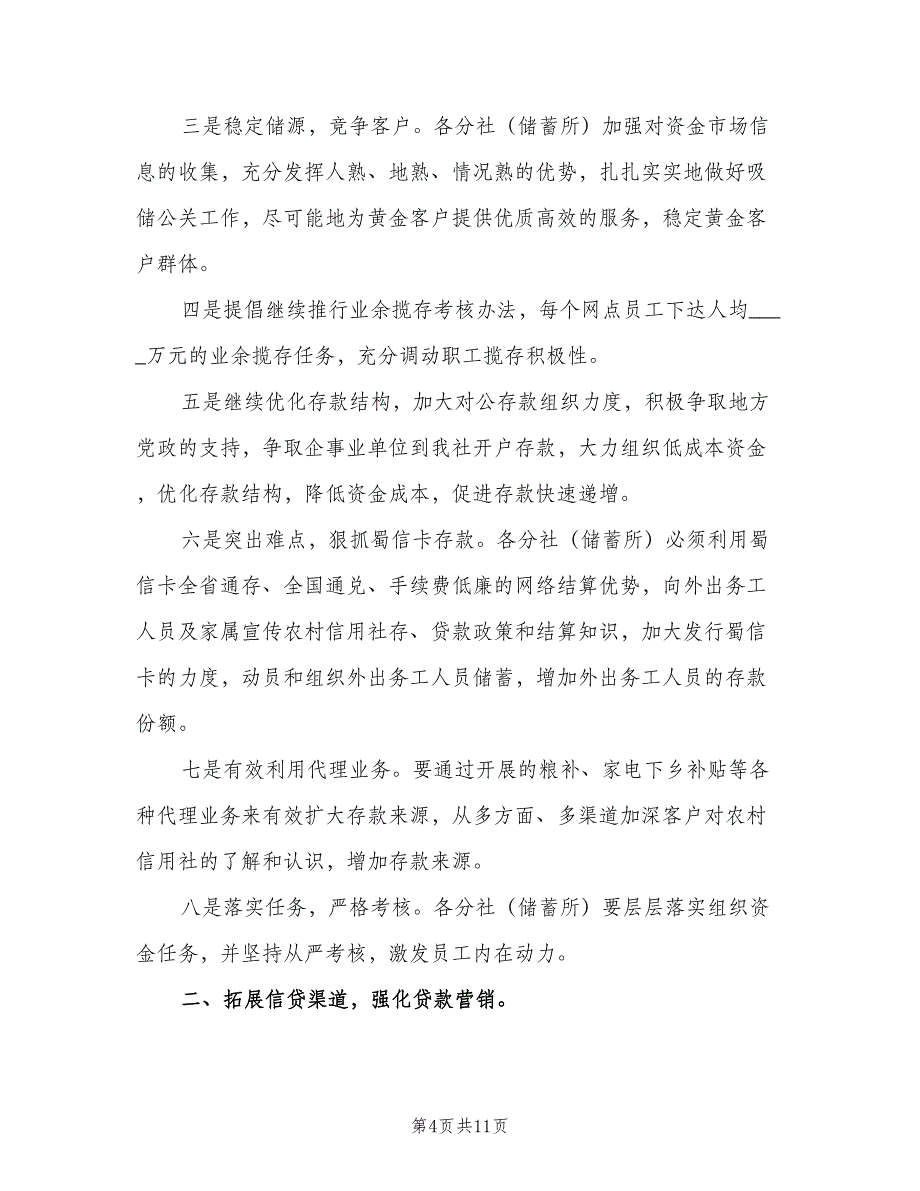 三是稳定储源，竞争客户。各分社（储蓄所）加强对资金市场信
息的收集，充分发挥人熟、地熟、情况熟的优势，扎扎实实地做好吸
储公关工作，尽可能地为黄金客户提供优质高效的服务，稳定黄金客
户群体。
四是提倡继续推行业余揽存考核办法，每个网点员工下达人均___
_万元的业余揽存任务，充分调动职工揽存积极性。
五是继续优化存款结构，加大对公存款组织力度，积极争取地方
党政的支持，争取企事业单位到我社开户存款，大力组织低成本资金
，优化存款结构，降低资金成本，促进存款快速递增。
六是突出难点，狠抓蜀信卡存款。各分社（储蓄所）必须利用蜀
信卡全省通存、全国通兑、手续费低廉的网络结算优势，向外出务工
人员及家属宣传农村信用社存、贷款政策和结算知识，加大发行蜀信
卡的力度，动员和组织外出务工人员储蓄，增加外出务工人员的存款
份额。
七是有效利用代理业务。要通过开展的粮补、家电下乡补贴等各
种代理业务来有效扩大存款来源，从多方面、多渠道加深客户对农村
信用社的了解和认识，增加存款来源。
八是落实任务，严格考核。各分社（储蓄所）要层层落实组织资
金任务，并坚持从严考核，激发员工内在动力。
二、拓展信贷渠道，强化贷款营销。
第4页共11页